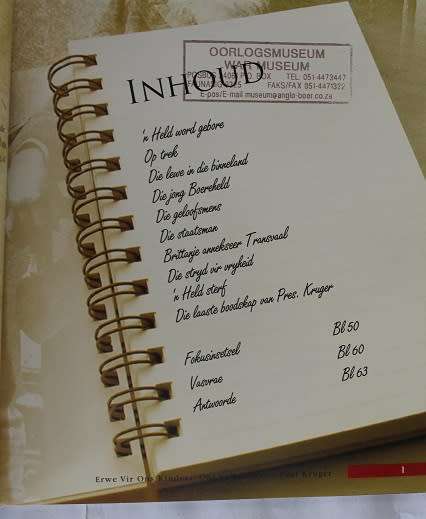 OORLOGSMUSEUM
WAR MUSEUM
BOX TEL. 051-4473447
FAKS/FAX 051-4471322
E-pos/E-mail museum@anglo-boer.co.za
INHOUD
'n Held word gebore
Op trek
Die lewe in die binneland
Die jong Boereheld
Die geloofsmens
Die staatsman
Brittanje annekseer Transvaal
Die stryd vir vryheid
'n Held sterf
Die laaste boodskap van Pres. Kruger
Fokusinsetsel Bl 50
Vasvrae Bl 60
Antwoorde Bl 63
Erwe Vir Ons Kinders: Kruger 1